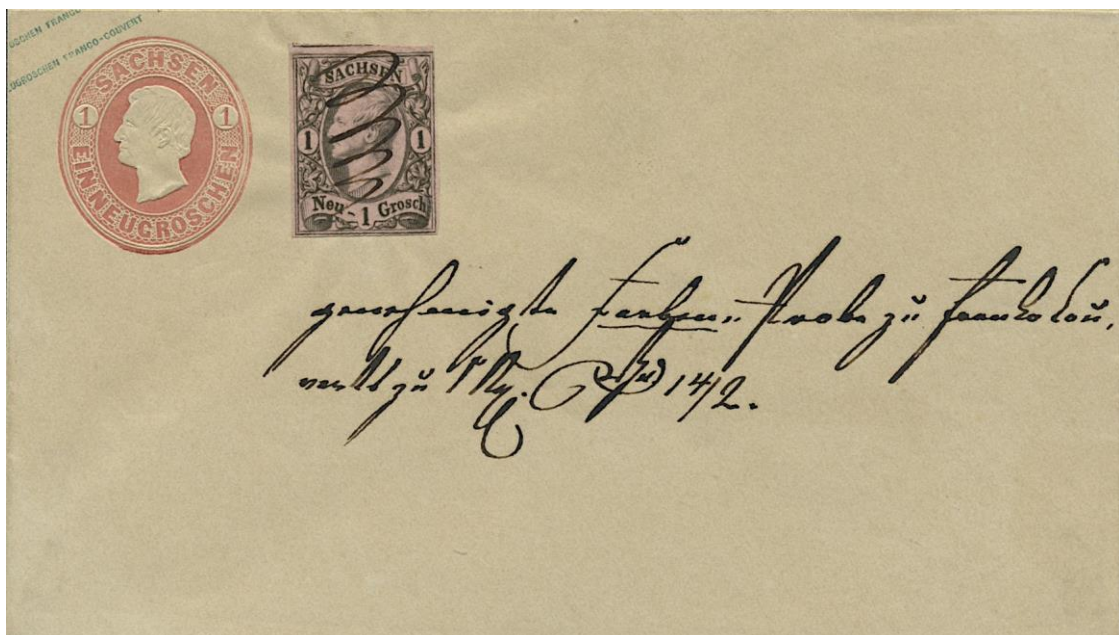 OSCHEN FRANCO
UGROSCHEN FRANCO-COUVERT
SACHSEN
1 1
EIN NEUGROSCHEN
SACHSEN
1 1
Neu- 1 Grosch
genehmigte Farben-Probe zu Franko Cou,
verts zu 1 Ng. 14/2.